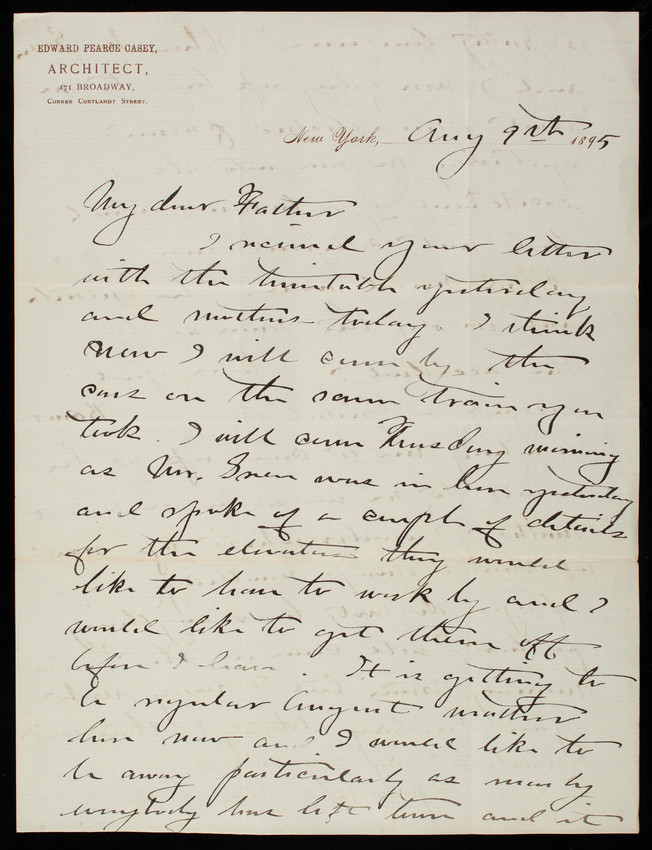 EDWARD PEARCE CASEY,
ARCHITECT,
171 BROADWAY,
CORNER CORTLANDT STREET.
New York, Aug 9th 1895
My dear Father
I received your letter
with the timetable yesterday
and mothers today. I think
now I will come by the
cars on the same train you
took. I will come Thursday morning
as Mr. was in here yesterday
and spoke of a couple of details
for the elevators they would
like to have to work by and I
would like to get them off
before I leave. It is getting to
be regular August weather
here now and I would like to
be away particularly as nearly
everybody has left town and it